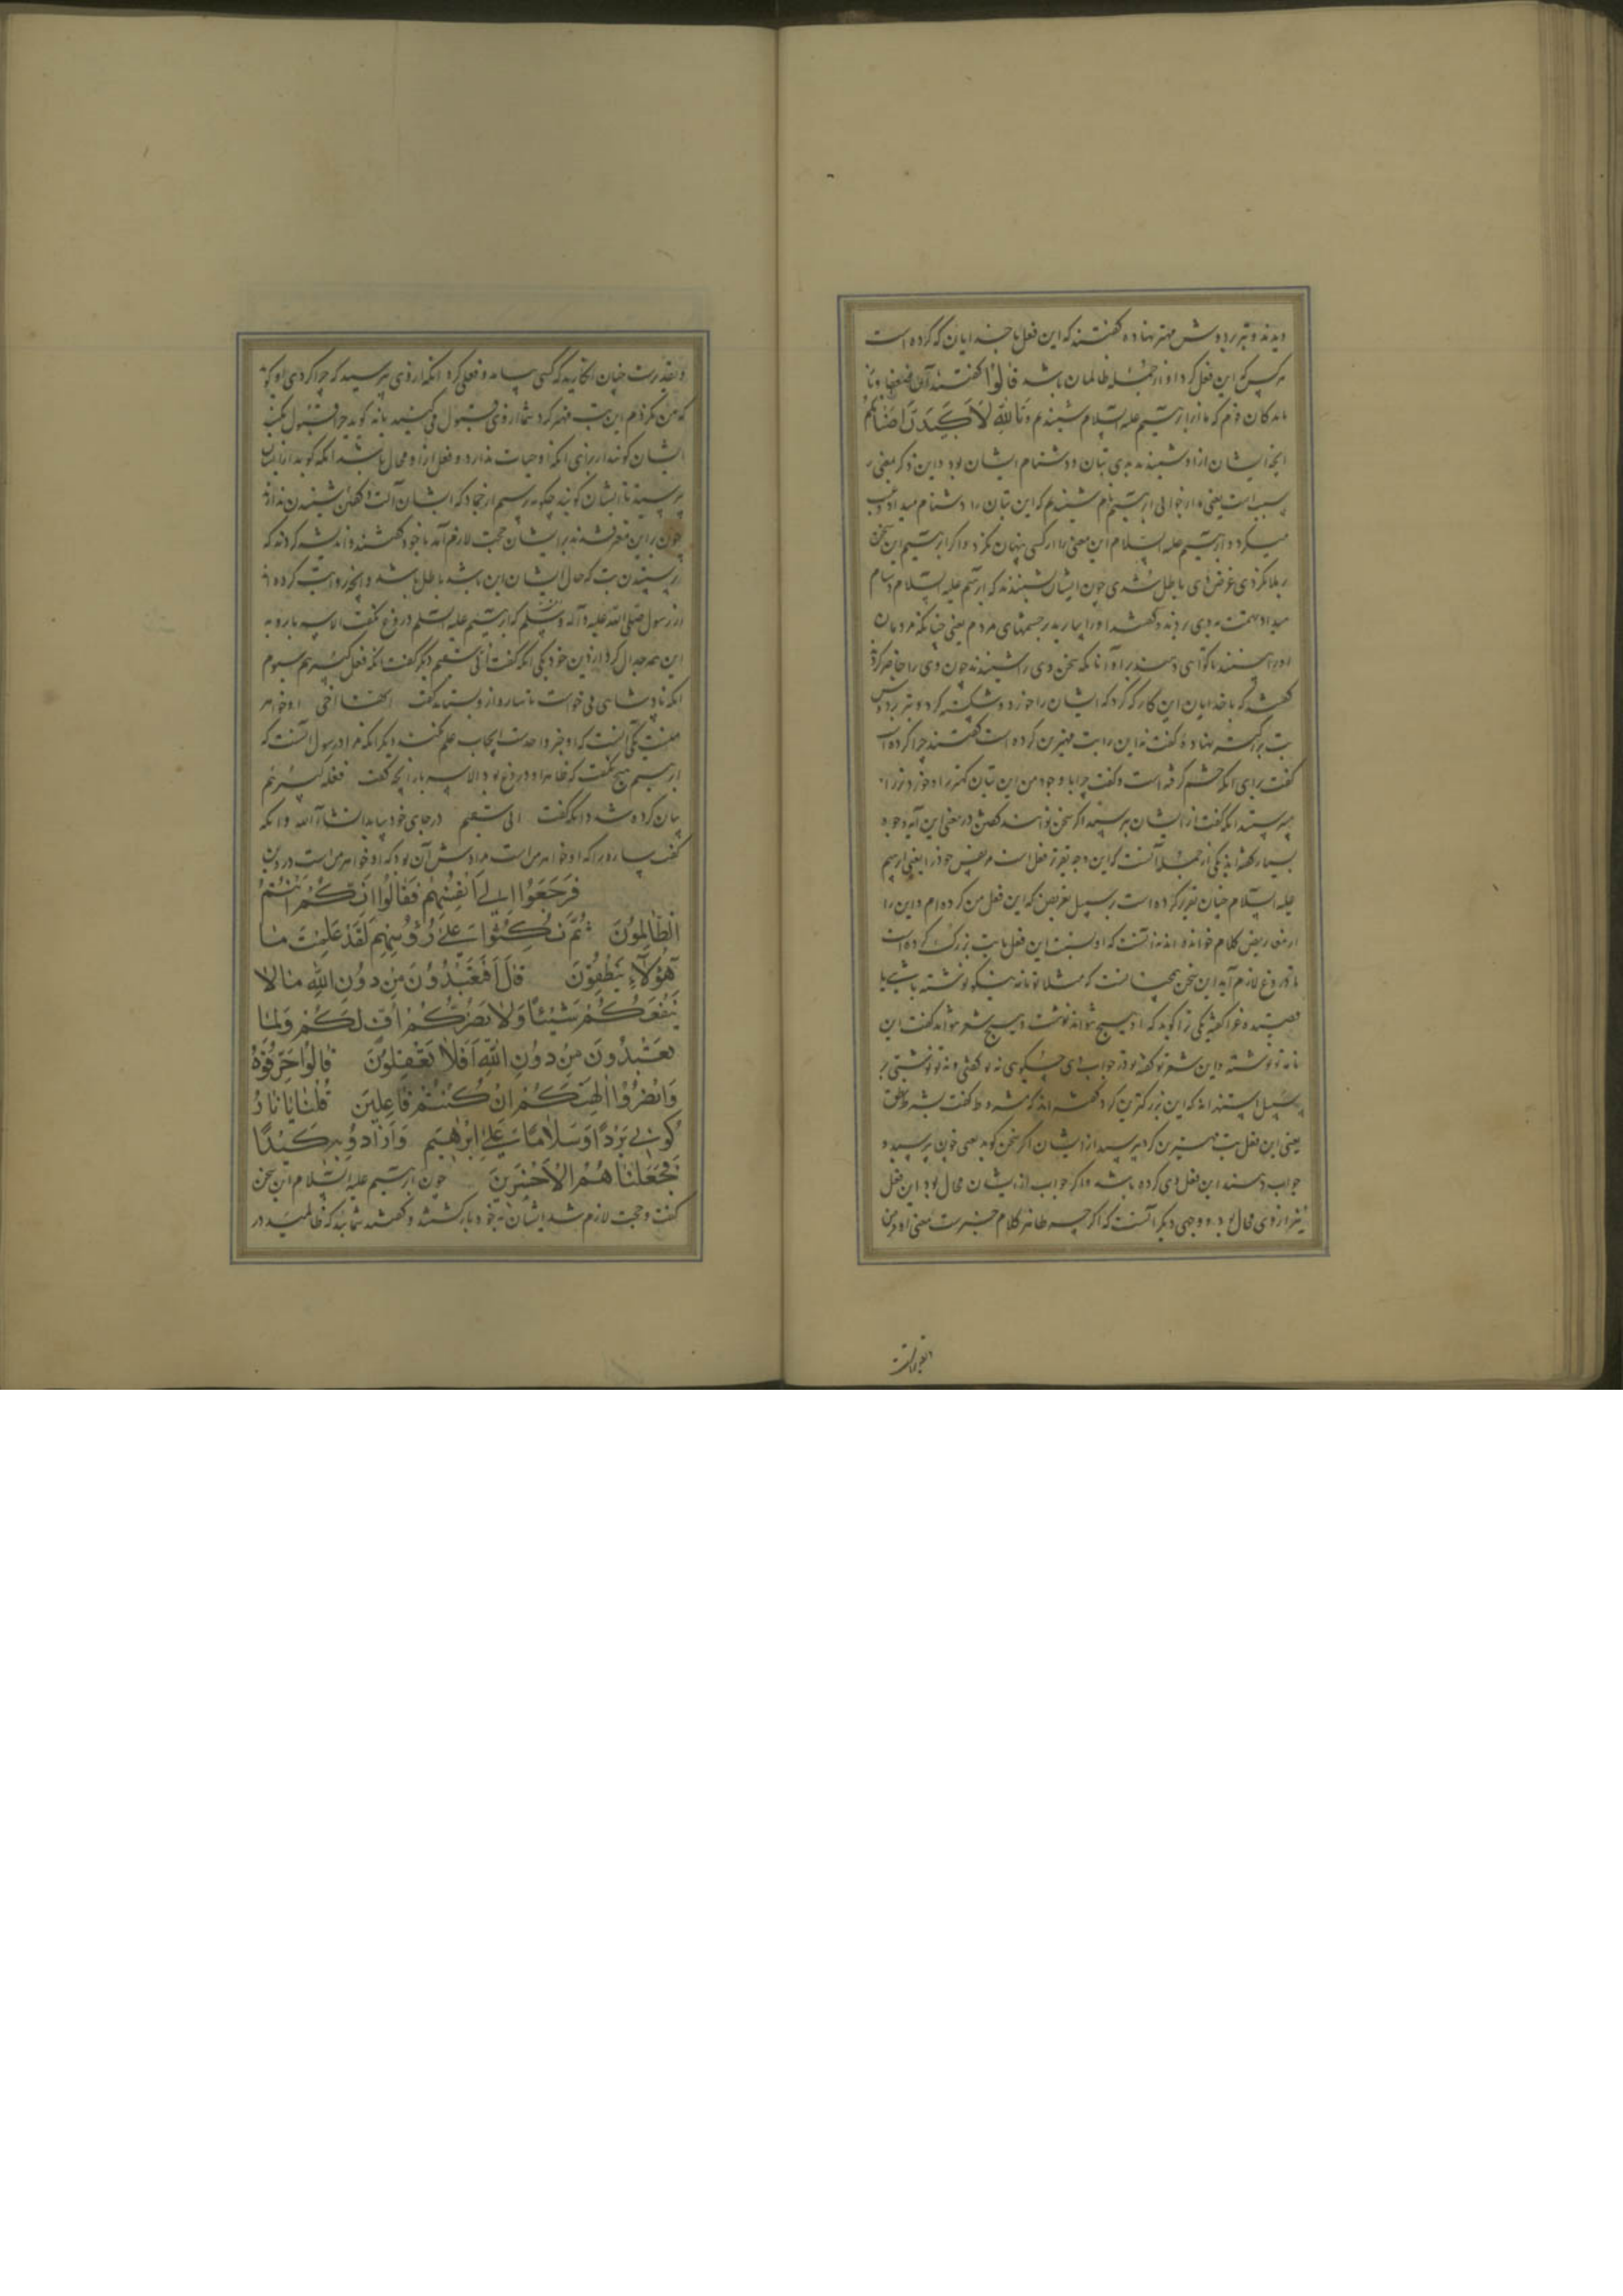 دیدند و تبر بر دوش مهتر نهاده گفتند که این فعل با خدایان که کرده است
هر کس که این فعل کرد او از جمله ظالمان باشد قالوا گفتند آن ضعفا و
ماندکان قوم که ما از ابرهیم علیه السلام شنیدیم و تالله لاکیدن اصنامکم
آنچه ایشان از او شنیدند بدی بتان و دشنام ایشان بود و این ذکر بمعنی
سبب است یعنی ما از جوانی ابرهیم نام شنیدیم که این بتان را دشنام میداد و عیب
میکرد و ابرهیم علیه السلام این معنی را از کسی پنهان نکردی و اگر ابرهیم این سخن
بر ملا نکردی غرض وی باطل شدی چون ایشان شنیدند که ابرهیم علیه السلام دشنام
میداد تهمت به وی بردند و گفتند او را بیارید بر چشمهای مردم یعنی چنانکه مردمان
او را بینند تا گواهی دهند بر او آنانکه سخن وی را شنیدند چون وی را حاضر کردند
گفتند که با خدایان این کار که کرد که ایشان را خورد و شکسته کرد و تبر بر دوش
بت بزرگ نهاده گفت نه این را بت مهترین کرده است گفتند چرا کرده است
گفت برای آنکه خشم گرفته است و گفت چرا با وجود من این بتان کمتر را
بپرستند آنکه گفت از ایشان بپرسید اگر سخن توانند گفتن در معنی این آیه وجوه
بسیار گفته اند یکی از جمله آنست که این وجه تقریر فعل است مر نفس خود را یعنی ابرهیم
علیه السلام چنان تقریر کرده است بر سبیل تعریض که این فعل من کرده ام و این را
از معاریض کلام خوانده اند نه آنست که او نسبت این فعل با بت بزرگ کرده است
تا دروغ لازم آید این سخن همچنانست که مثلا تو نامه نیکو نوشته باشی یا
قصیده غرا گفته یکی ترا گوید که او هیچ نتواند نوشت و هیچ شعر نتواند گفت این
نامه تو نوشته و این شعر تو گفته تو در جواب وی گویی نه تو گفتی و نه تو نوشتی بر
سبیل استهزا نه که این بزرگترین کرد گفته اند که مشروط گفت بشرط نطق
یعنی این فعل بت مهترین کرد بپرسید از ایشان اگر سخن گویند یعنی چون بپرسید و
جواب دهند این فعل وی کرده باشد و اگر جواب از ایشان محال بود این فعل
نیز از وی محال بود و وجهی دیگر آنست که اگر چه ظاهر کلام خبرست معنی او
و تقدیرست چنان انکارید که کسی بیامد و فعلی کرد آنکه از وی پرسید که چرا کردی او گوید
که من نکردم این بت مهتر کرد شما از وی قبول می کنید یا نه گویند چرا قبول کنیم
ایشان گویند از برای آنکه او حیات ندارد و فعل از او محال باشد آنکه گوید از ایشان
بپرسید تا ایشان گویند چگونه پرسیم از جماد که ایشان آلت گفتن شنیدن ندارند
چون بر این مقر شدند بر ایشان حجت لازم آمد با خود گفتند و اندیشه کردند که
پرستیدن بت که حال ایشان این باشد باطل باشد و آنچه روایت کرده اند
از رسول صلی الله علیه و آله و سلم که ابرهیم علیه السلم دروغ نگفت الا سه بار و به
این همه جدال کرد از دین خود یکی آنکه گفت انی سقیم دیگر گفت آنکه فعل کبیرهم سیوم
آنکه پادشاهی می خواست تا ساره از او بستاند گفت انها اختی او خواهر
منست یکی آنست که او خبر واحدست ایجاب علم نکند دیگر آنکه مراد رسول آنست که
ابرهیم هیچ نگفت که ظاهر او دروغ بود الا سه بار آنچه گفت فعله کبیرهم
بیان کرده شد و آنکه گفت انی سقیم در جای خود بیاید انشاء الله و آنکه
گفت ساره را که او خواهر من است مرادش آن بود که او خواهر من است در دین
فرجعوا الی انفسهم فقالوا انکم انتم
الظالمون ثم نکسوا علی رؤوسهم لقد علمت ما
هؤلاء ینطقون قل افتعبدون من دون الله ما لا
ینفعکم شیئا ولا یضرکم اف لکم ولما
تعبدون من دون الله افلا تعقلون قالوا حرقوه
وانصروا الهتکم ان کنتم فاعلین قلنا یا نار
کونی بردا وسلاما علی ابرهیم وارادوا به کیدا
فجعلناهم الاخسرین چون ابرهیم علیه السلام این سخن
گفت و حجت لازم شد ایشان به خود بازگشتند و گفتند شمایید که ظالمید در